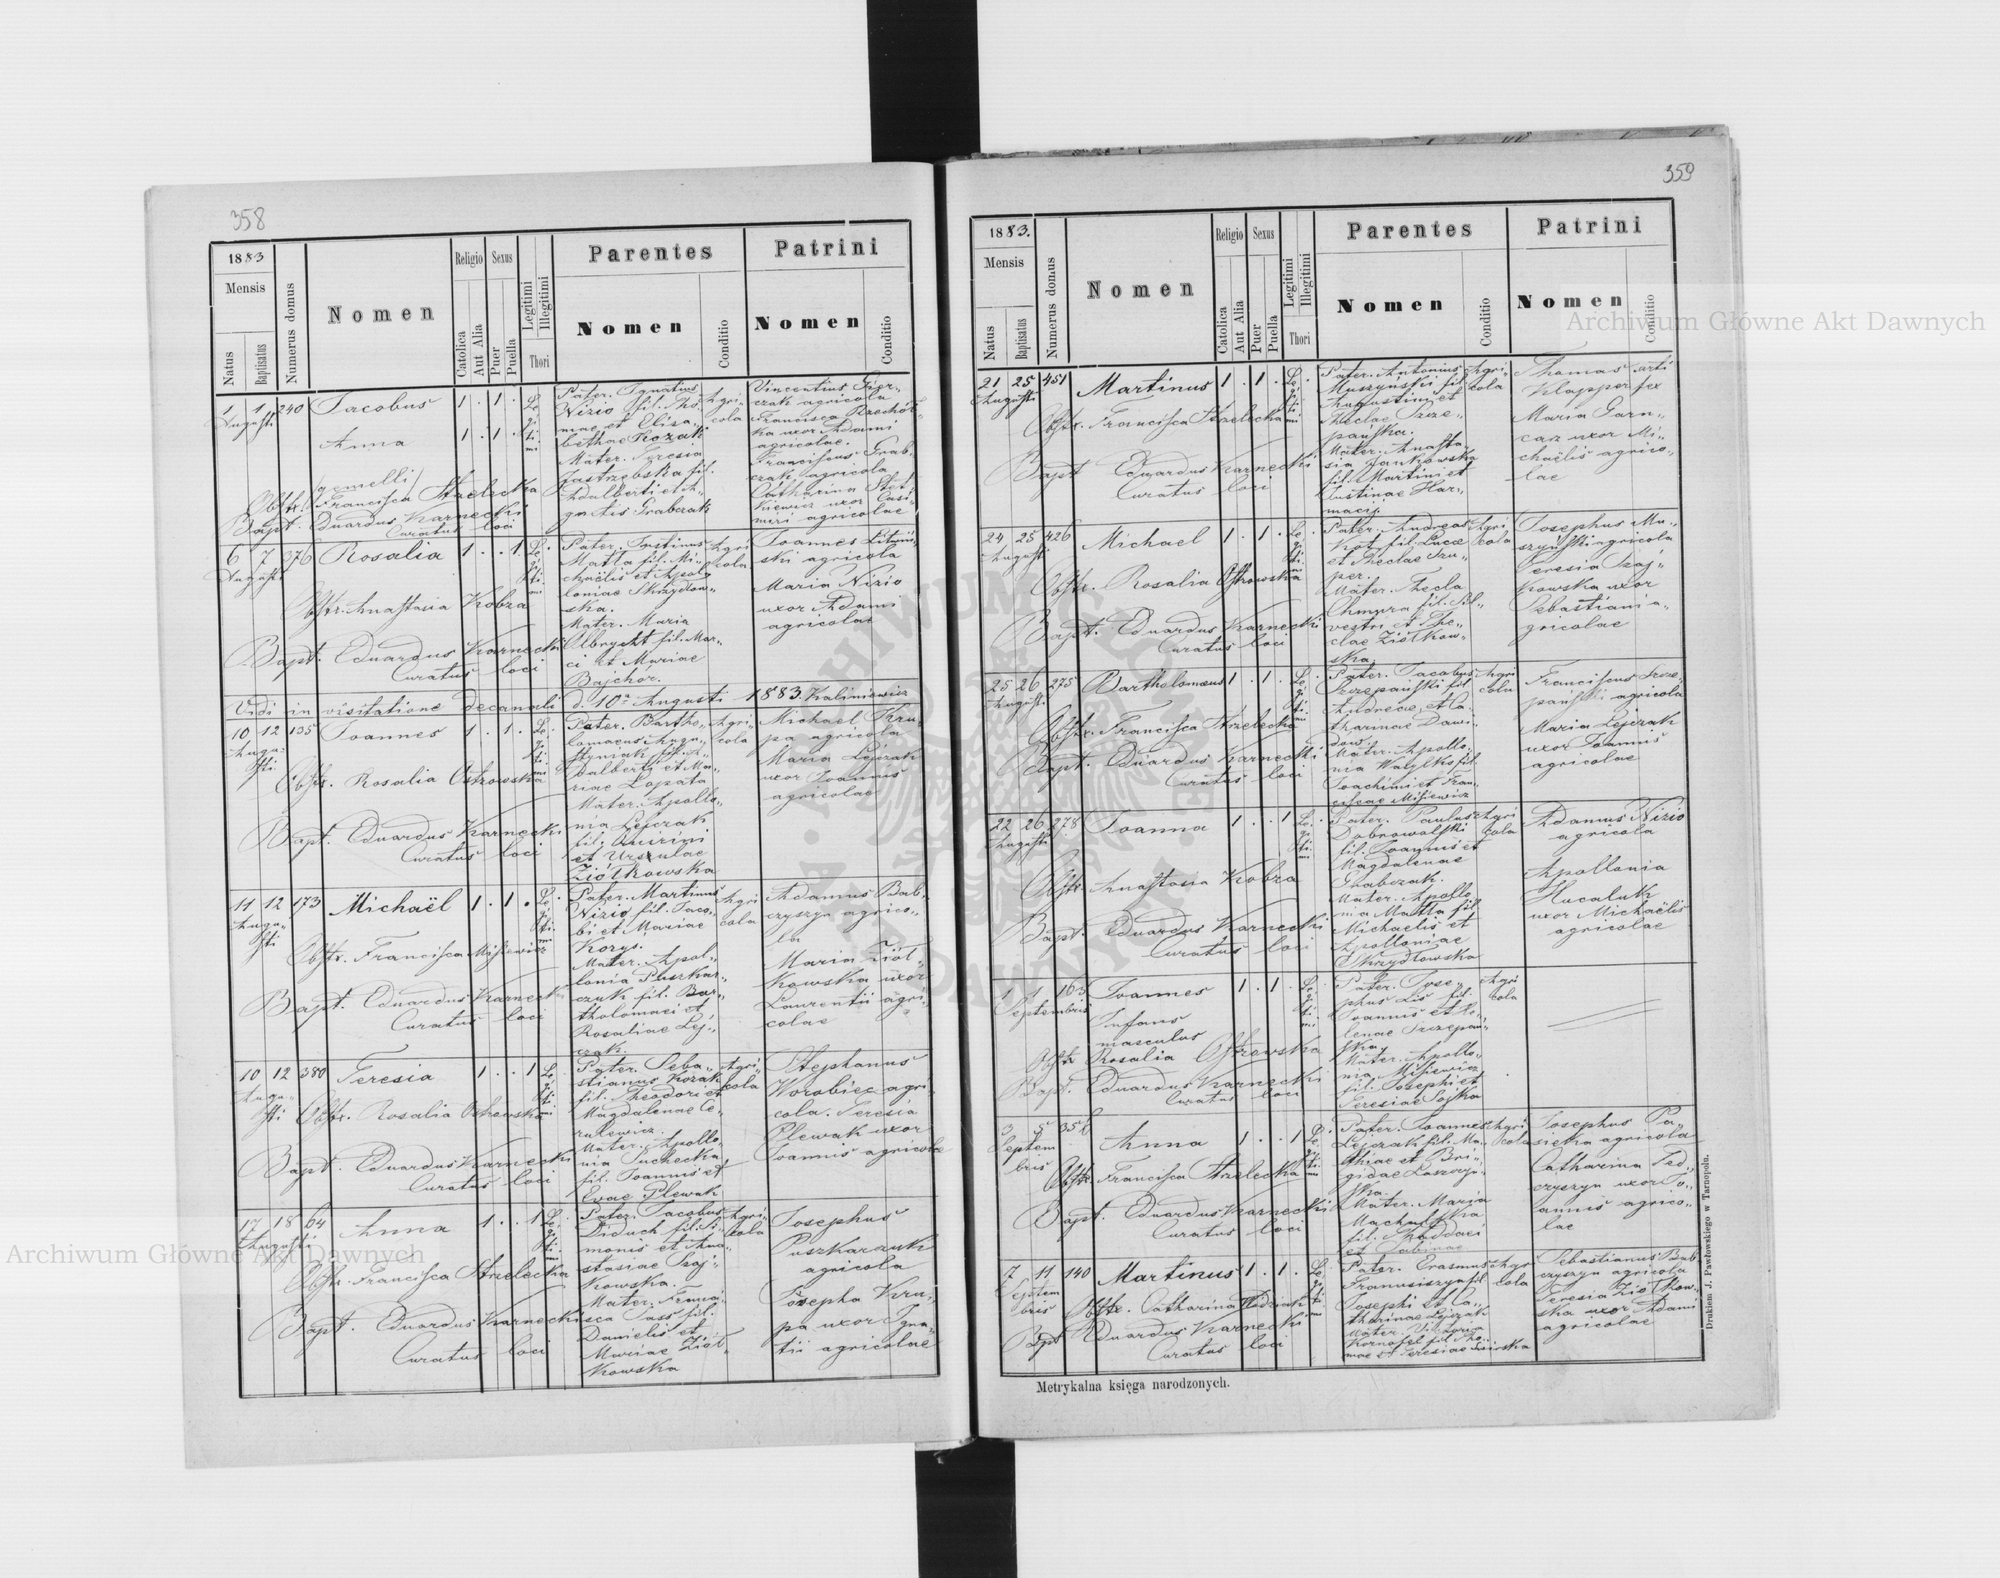 358
1883
Mensis
Natus
Baptisatus
Numerus domus
Nomen
Religio
Catolica
Aut Alia
Sexus
Puer
Puella
Legitimi
Illegitimi
Thori
Parentes
Nomen
Conditio
Patrini
Nomen
Conditio
1 1 240 Jacobus 1 . 1 .
Augusti
Anna
gemelli
Obstr. Francisca Strzelecka
Bapt. Eduardus Karnecki
Curatus loci
Pater. Ignatius
Nizio fil. Tho
mae et Elisa
bethae Kozak
Mater. Teresia
Jastrzebska fil.
Adalberti et A
gnetis Grabczak
Agri
cola
Vincentius Gier
czak agricola
Francisca Rzechół
ka uxor Adami
agricolae.
Franciscus Grab
czak agricola
Catharina Stet
kiewicz uxor Casi
miri agricolae
6 7 376 Rosalia 1 . . 1
Augusti
Obstr. Anastasia Kobza
Bapt. Eduardus Karnecki
Curatus loci
Matla fil. Mi
chaëlis et Apol
loniae Skrzydłow
ska.
Mater. Maria
Olbrycht fil. Mar
ci et Mariae
Bajchor.
Agri
cola
ski agricola
Maria Nizio
uxor Adami
agricolae
Vidi in visitatione decanali d. 10ª Augusti 1883. Kaliniewicz
10 12 135 Joannes 1 . 1 .
Augu
sti
Obstr. Rosalia Ostrowska
Bapt. Eduardus Karnecki
Curatus loci
Pater. Bartho
lomaeus Augu
styniak fil. A
dalberti et Ma
riae Lopata
Mater. Apollo
nia Lejczak
fil. Quirini
et Ursulae
Ziółkowska
Agri
cola
Michael Kru
pa agricola
Maria Lejczak
uxor Joannis
agricolae
11 12 173 Michaël 1 . 1 .
Augu
sti
Obstr. Francisca Misiewicz
Bapt. Eduardus Karnecki
Curatus loci
Pater. Martinus
Nizio fil. Jaco
bi et Mariae
Korys.
Mater. Apol
lonia Puszkar
czuk fil. Bar
tholomaei et
Rosaliae Lej
czak.
Agri
cola
Adamus Bab
czyszyn agrico
la
Maria Ziół
kowska uxor
Laurentii agri
colae
10 12 380 Teresia 1 . . 1
Augu
sti
Obstr. Rosalia Ostrowska
Bapt. Eduardus Karnecki
Curatus loci
Pater. Seba
stianus Kozak
fil. Theodori et
Magdalenae Ce
rulewicz.
Mater. Apollo
nia Suchecka
fil. Joannis et
Evae Plewak
Agri
cola
Stephanus
Worobiec agri
cola. Teresia
Plewak uxor
Joannis agricolae
17 18 64 Anna 1 . . 1
Augusti
Obstr. Francisca Strzelecka
Bapt. Eduardus Karnecki
Curatus loci
Pater. Jacobus
Diduch fil. Si
monis et Ana
stasiae Czaj
kowska.
Mater. Franci
sca Sass fil.
Danielis et
Mariae Ziół
kowska
Agri
cola
Josephus
Puszkarczuk
agricola
Josepha Kru
pa uxor Igna
tii agricolae
359
1883.
Mensis
Natus
Baptisatus
Numerus domus
Nomen
Religio
Catolica
Aut Alia
Sexus
Puer
Puella
Legitimi
Illegitimi
Thori
Parentes
Nomen
Conditio
Patrini
Nomen
Conditio
21 25 451 Martinus 1 . 1 .
Augusti
Obstr. Francisca Strzelecka
Bapt Eduardus Karnecki
Curatus loci
Pater. Antonius
Muszyński fil
Augustini et
Theclae Szcze
pańska.
Mater. Anasta
sia Jankowska
fil. Martini et
Justinae Har
macij
Agri
cola
Thomas arti
Klapper fex
Maria Garn
carz uxor Mi
chaëlis agrico
lae
24 25 426 Michael 1 . 1 .
Augusti
Obstr. Rosalia Ostrowska
Bapt. Eduardus Karnecki
Curatus loci
Pater. Andreas
Kot fil. Lucae
et Theclae Szu
per.
Mater. Thecla
Chmura fil. Sil
vestri et The
clae Ziółkow
ska
Agri
cola
Josephus Mu
szyński agricola
Teresia Czaj
kowska uxor
Sebastiani a
gricolae
25 26 275 Bartholomeus 1 . 1 .
Augusti
Obstr. Francisca Strzelecka
Bapt. Eduardus Karnecki
Curatus loci
Pater. Jacobus
Szczepański fil.
Andreae et Ca
tharinae Dawi
dow.
Mater. Apollo
Joachimi et Fran
ciscae Misiewicz
Agri
cola
Franciscus Szcze
pański agricola
Maria Lejczak
uxor Joannis
agricolae
22 26 278 Joanna 1 . . 1
Augusti
Obstr. Anastasia Kobza
Bapt. Eduardus Karnecki
Curatus loci
Pater. Paulus
Dobrowolski
fil. Joannis et
Magdalenae
Grabczak.
Mater. Apollo
nia Matla fil
Michaelis et
Apolloniae
Skrzydłowska
Agri
cola
Adamus Nizio
agricola
Apollonia
Hucaluk
uxor Michaëlis
agricolae
1 1 163 Joannes 1 . 1 .
Septembris
Infans
masculus
Obstr Rosalia Ostrowska
Bapt. Eduardus Karnecki
Curatus loci
Pater. Jose
phus Lis fil.
Joannis et He
lenae Szczepań
ska
Mater. Apollo
nia Misiewicz
fil. Josephi et
Teresiae Sojka
Agri
cola
3 5 356 Anna 1 . . 1
Septem
bris
Obstr. Francisca Strzelecka
Bapt. Eduardus Karnecki
Curatus loci
Pater. Joannes
Lejczak fil. Ma
thiae et Bri
gidae Laszczyń
ska.
Mater. Maria
Machulska
fil. Thaddaei
et Sabinae
Agri
cola
Josephus Pa
sieka agricola
Catharina Fed
czyszyn uxor Jo
annis agrico
lae
7 11 140 Martinus 1 . 1 .
Septem
bris
Obstr. Catharina Wodziak
Bapt Eduardus Karnecki
Curatus loci
Pater. Erasmus
Franusiszyn fil
Josephi et Ca
tharinae Lejczak
Mater. Victoria
Kornafel fil. Tho
Agri
cola
Sebastianus Bab
czyszyn agricola
Teresia Ziółkow
ska uxor Adami
agricolae
Metrykalna księga narodzonych.
Drukiem J. Pawłowskiego w Tarnopolu.
Archiwum Główne Akt Dawnych
Archiwum Główne Akt Dawnych
ARCHIWUM GŁÓWNE AKT DAWNYCH